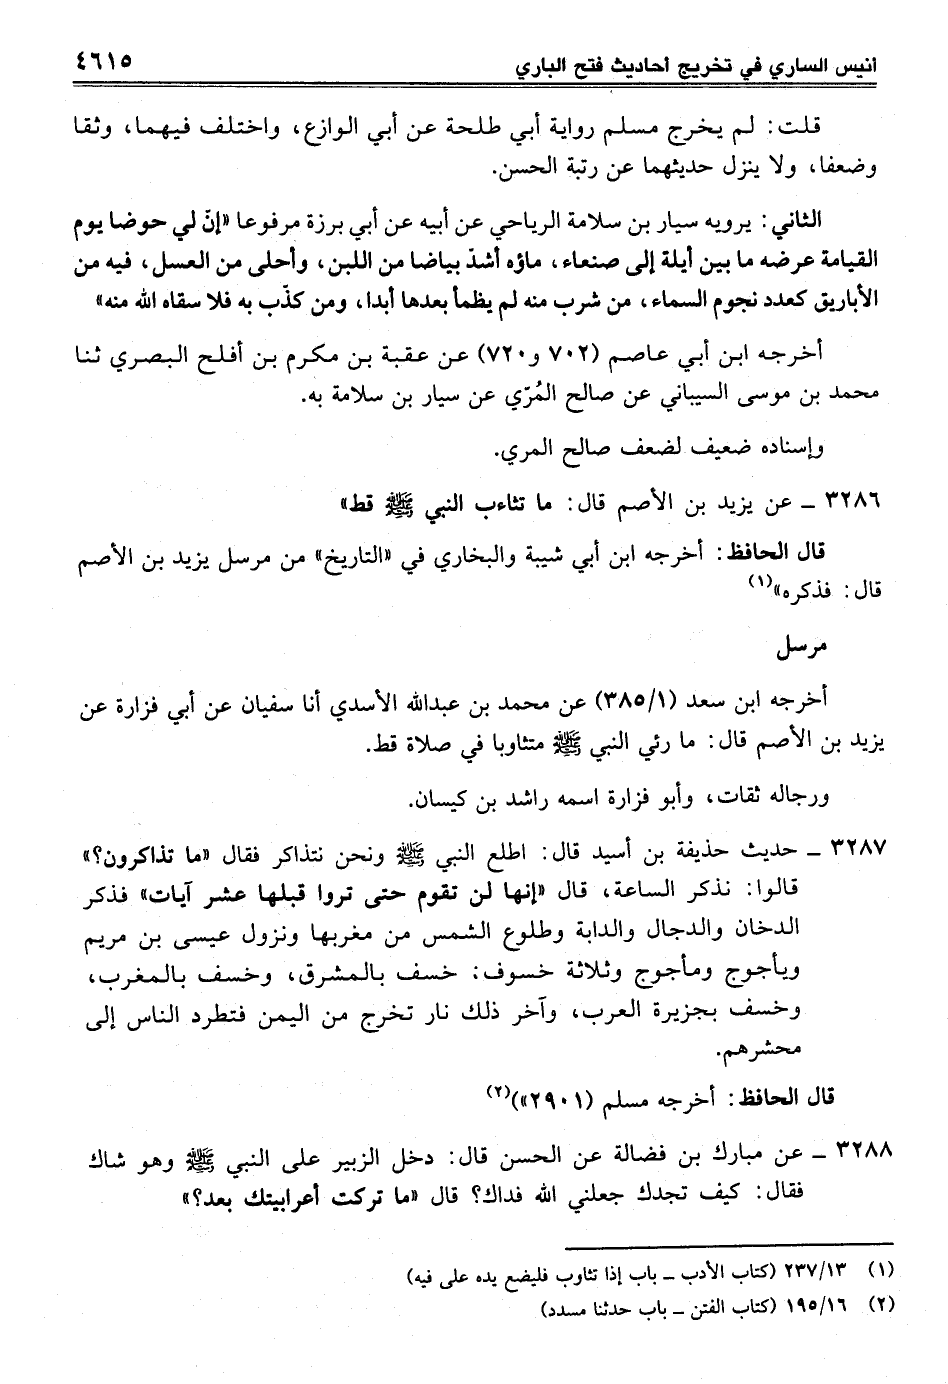 أنيس الساري في تخريج أحاديث فتح الباري ٤٦١٥
قلت: لم يخرج مسلم رواية أبي طلحة عن أبي الوازع، واختلف فيهما، وثقا
وضعفا، ولا ينزل حديثهما عن رتبة الحسن.
الثاني: يرويه سيار بن سلامة الرياحي عن أبيه عن أبي برزة مرفوعا «إنّ لي حوضا يوم
القيامة عرضه ما بين أيلة إلى صنعاء، ماؤه أشدّ بياضا من اللبن، وأحلى من العسل، فيه من
الأباريق كعدد نجوم السماء، من شرب منه لم يظمأ بعدها أبدا، ومن كذّب به فلا سقاه الله منه»
أخرجه ابن أبي عاصم (٧٠٢ و٧٢٠) عن عقبة بن مكرم بن أفلح البصري ثنا
محمد بن موسى السيباني عن صالح المُرّي عن سيار بن سلامة به.
وإسناده ضعيف لضعف صالح المري.
٣٢٨٦ ـ عن يزيد بن الأصم قال: ما تثاءب النبي ﷺ قط»
قال الحافظ: أخرجه ابن أبي شيبة والبخاري في «التاريخ» من مرسل يزيد بن الأصم
قال: فذكره»(١)
مرسل
أخرجه ابن سعد (٣٨٥/١) عن محمد بن عبدالله الأسدي أنا سفيان عن أبي فزارة عن
يزيد بن الأصم قال: ما رئي النبي ﷺ متثاوبا في صلاة قط.
ورجاله ثقات، وأبو فزارة اسمه راشد بن كيسان.
٣٢٨٧ ـ حديث حذيفة بن أسيد قال: اطلع النبي ﷺ ونحن نتذاكر فقال «ما تذاكرون؟»
قالوا: نذكر الساعة، قال «إنها لن تقوم حتى تروا قبلها عشر آيات» فذكر
الدخان والدجال والدابة وطلوع الشمس من مغربها ونزول عيسى بن مريم
ويأجوج ومأجوج وثلاثة خسوف: خسف بالمشرق، وخسف بالمغرب،
وخسف بجزيرة العرب، وآخر ذلك نار تخرج من اليمن فتطرد الناس إلى
محشرهم.
قال الحافظ: أخرجه مسلم (٢٩٠١)»(٢)
٣٢٨٨ ـ عن مبارك بن فضالة عن الحسن قال: دخل الزبير على النبي ﷺ وهو شاك
فقال: كيف تجدك جعلني الله فداك؟ قال «ما تركت أعرابيتك بعد؟»
(١) ٢٣٧/١٣ (كتاب الأدب ـ باب إذا تثاوب فليضع يده على فيه)
(٢) ١٩٥/١٦ (كتاب الفتن ـ باب حدثنا مسدد)